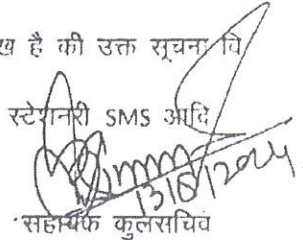 है की उक्त सूचना वि
स्टेशनरी SMS आदि
13/8/2024
सहायक कुलसचिव